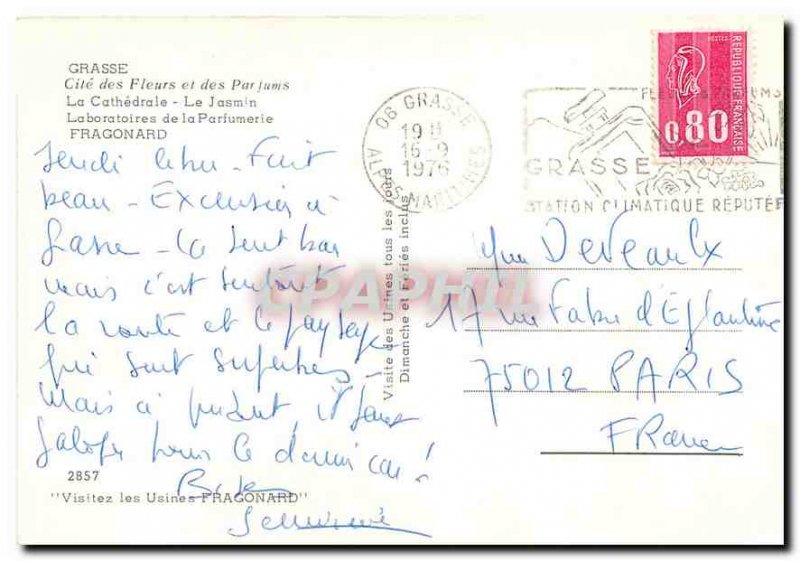 GRASSE
Cité des Fleurs et des Parfums
La Cathédrale - Le Jasmin
Laboratoires de la Parfumerie
FRAGONARD
Fait
beau - Excursion à
Grasse - ça sent bon
mais c'est surtout
la route et le paysage
qui sont superbes -
Mais à présent, il faut
galoper pour le dernier car !
2857
"Visitez les Usines FRAGONARD"
Visite des Usines tous les jours
Dimanche et Fériés inclus
06 GRASSE
19 H
16-9
1976
ALPES-MARITIMES
GRASSE
STATION CLIMATIQUE RÉPUTÉE
POSTES
REPUBLIQUE FRANÇAISE
0,80
CPAPHIL
Mme Deveaulx
17 rue Fabre d'Eglantine
75012 PARIS
France